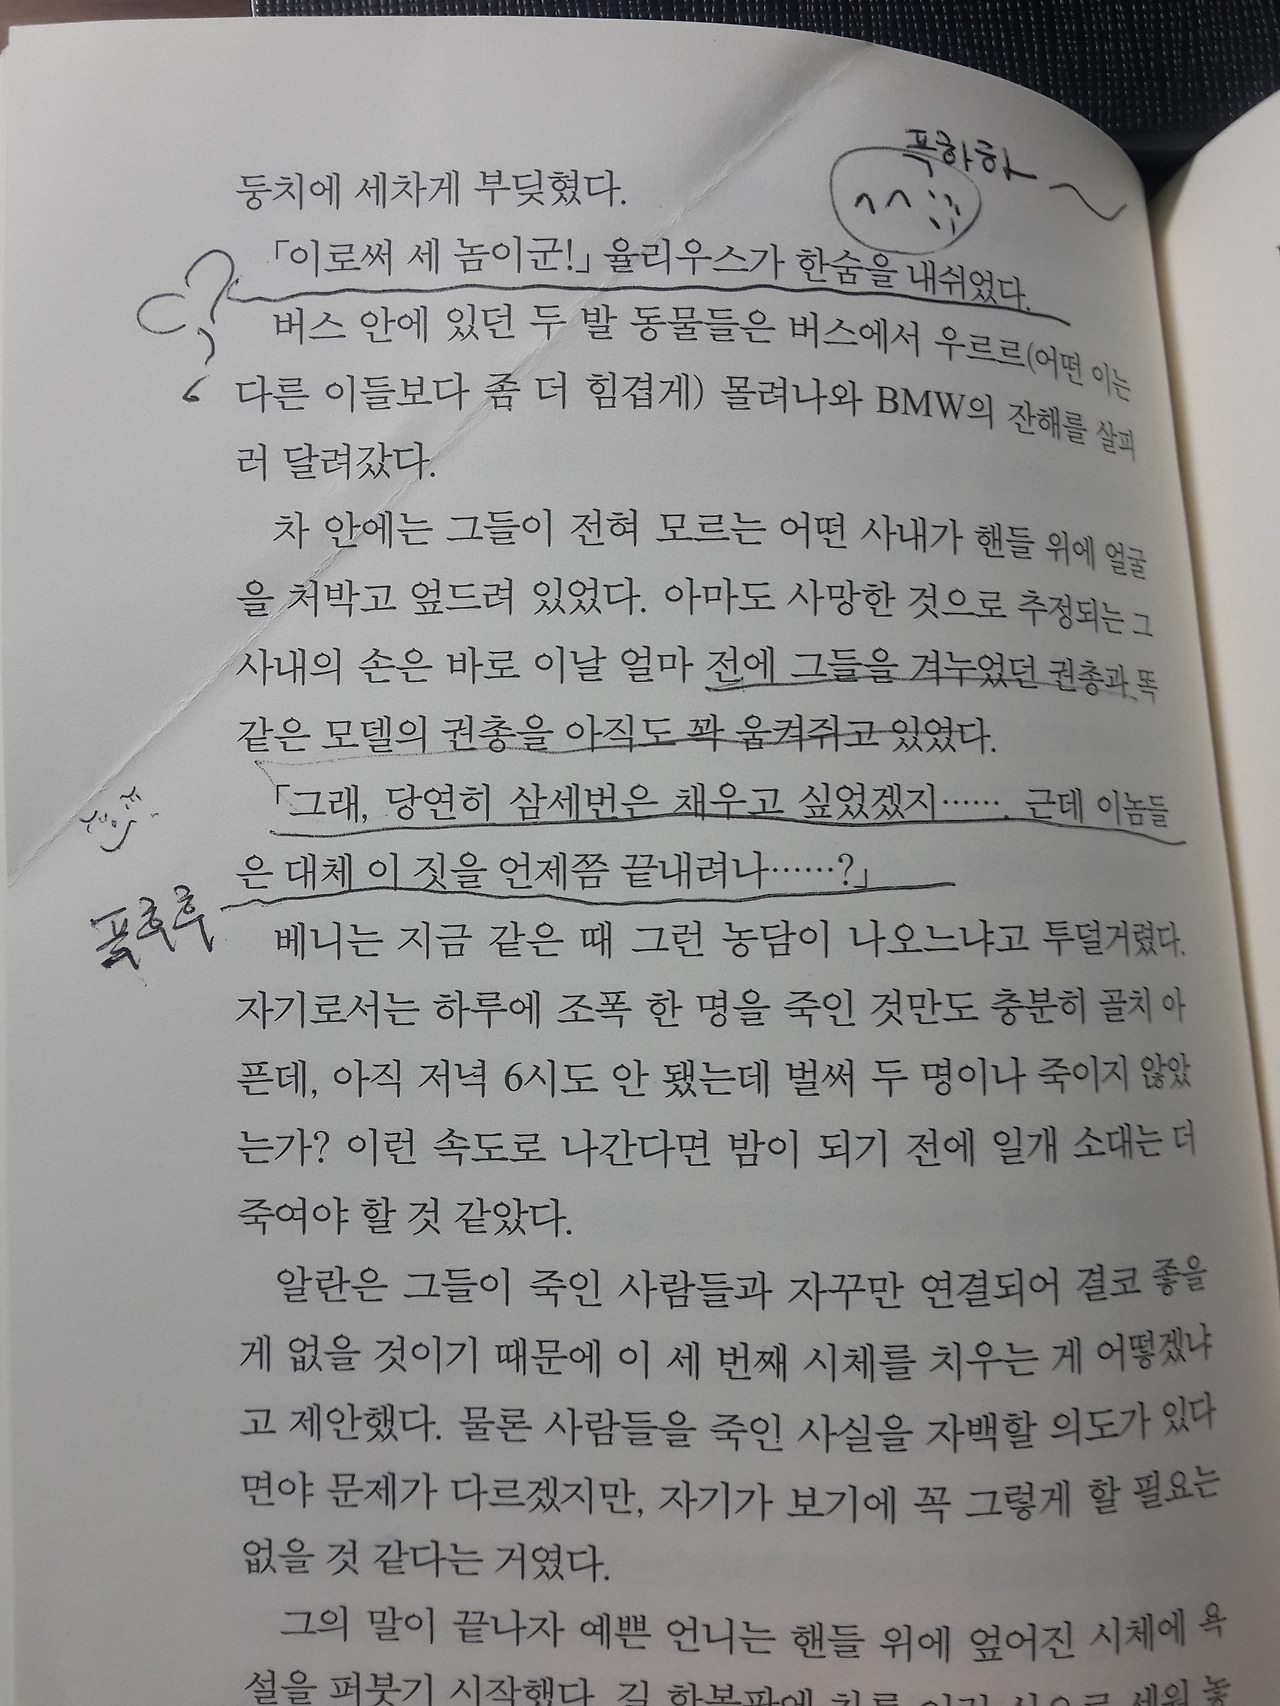 푹하하
둥치에 세차게 부딪혔다.
「이로써 세 놈이군!」 율리우스가 한숨을 내쉬었다.
버스 안에 있던 두 발 동물들은 버스에서 우르르(어떤 이는
다른 이들보다 좀 더 힘겹게) 몰려나와 BMW의 잔해를 살피
러 달려갔다.
차 안에는 그들이 전혀 모르는 어떤 사내가 핸들 위에 얼굴
을 처박고 엎드려 있었다. 아마도 사망한 것으로 추정되는 그
사내의 손은 바로 이날 얼마 전에 그들을 겨누었던 권총과 똑
같은 모델의 권총을 아직도 꽉 움켜쥐고 있었다.
「그래, 당연히 삼세번은 채우고 싶었겠지……. 근데 이놈들
은 대체 이 짓을 언제쯤 끝내려나……?」
푸후후
베니는 지금 같은 때 그런 농담이 나오느냐고 투덜거렸다.
자기로서는 하루에 조폭 한 명을 죽인 것만도 충분히 골치 아
픈데, 아직 저녁 6시도 안 됐는데 벌써 두 명이나 죽이지 않았
는가? 이런 속도로 나간다면 밤이 되기 전에 일개 소대는 더
죽여야 할 것 같았다.
알란은 그들이 죽인 사람들과 자꾸만 연결되어 결코 좋을
게 없을 것이기 때문에 이 세 번째 시체를 치우는 게 어떻겠냐
고 제안했다. 물론 사람들을 죽인 사실을 자백할 의도가 있다
면야 문제가 다르겠지만, 자기가 보기에 꼭 그렇게 할 필요는
없을 것 같다는 거였다.
그의 말이 끝나자 예쁜 언니는 핸들 위에 엎어진 시체에 욕
설을 퍼붓기 시작했다. 길 한복판에